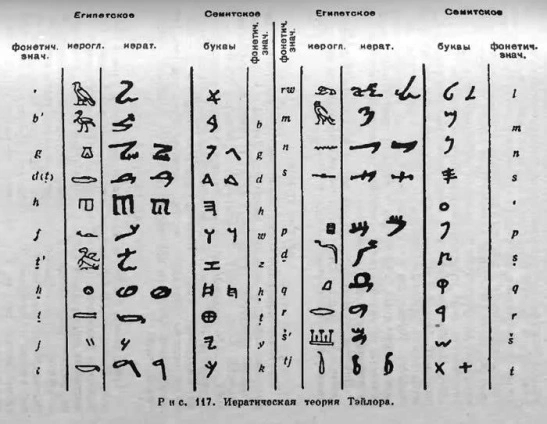 Египетское Семитское Египетское Семитское
фонетич. знач. иерогл. иерат. буквы фонетич. знач. фонетич. знач. иерогл. иерат. буквы фонетич. знач.
' rw l
b' b m m
g g n n
d(ṭ) d s s
h h '
f w p p
ṯ' z ḏ ṣ
ḥ ḥ q q
ṭ ṭ r r
j y š' š
i k tj t
Рис. 117. Иератическая теория Тэйлора.